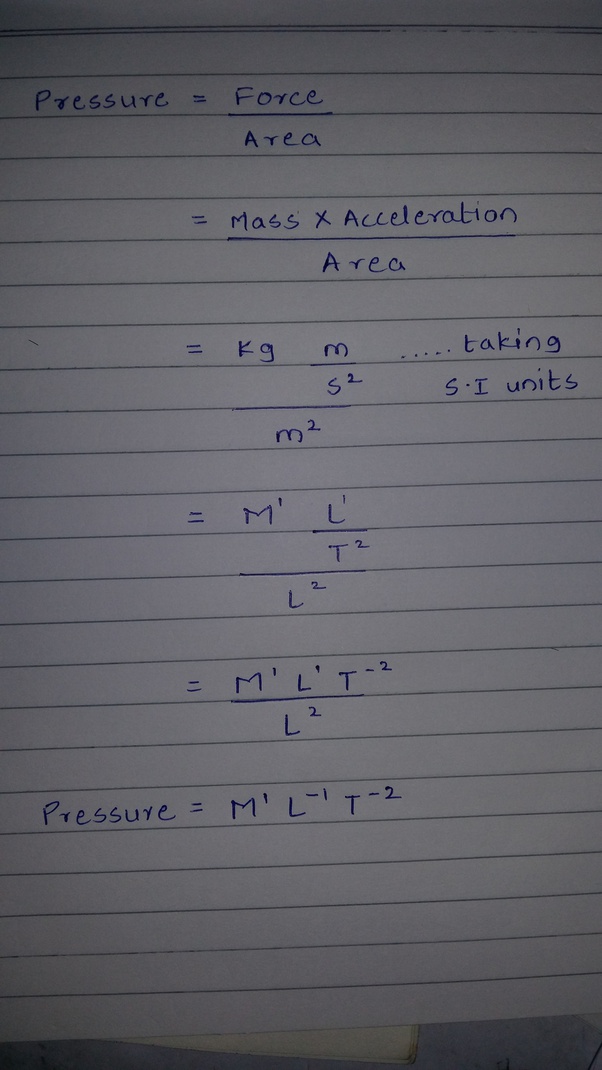 Pressure = Force
Area
= Mass X Acceleration
Area
= Kg m ..... taking
s² S.I units
m²
= M' L'
T²
L²
= M' L' T⁻²
L²
Pressure = M' L⁻¹ T⁻²